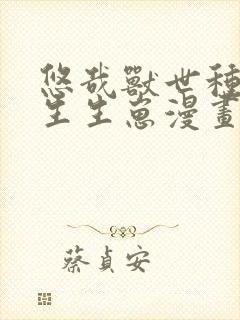 悠哉獸世種
生生崽漫畫
蔡貞安